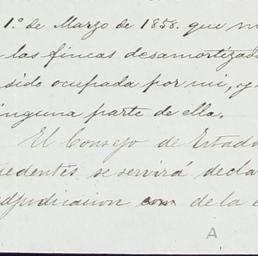 1.º de Marzo de 1858. que
las fincas desamortizad
sido ocupada por mi, y
inguna parte de ella.
El Consejo de Estado
edentes se servirá decla
adjudicaiion con de la
A